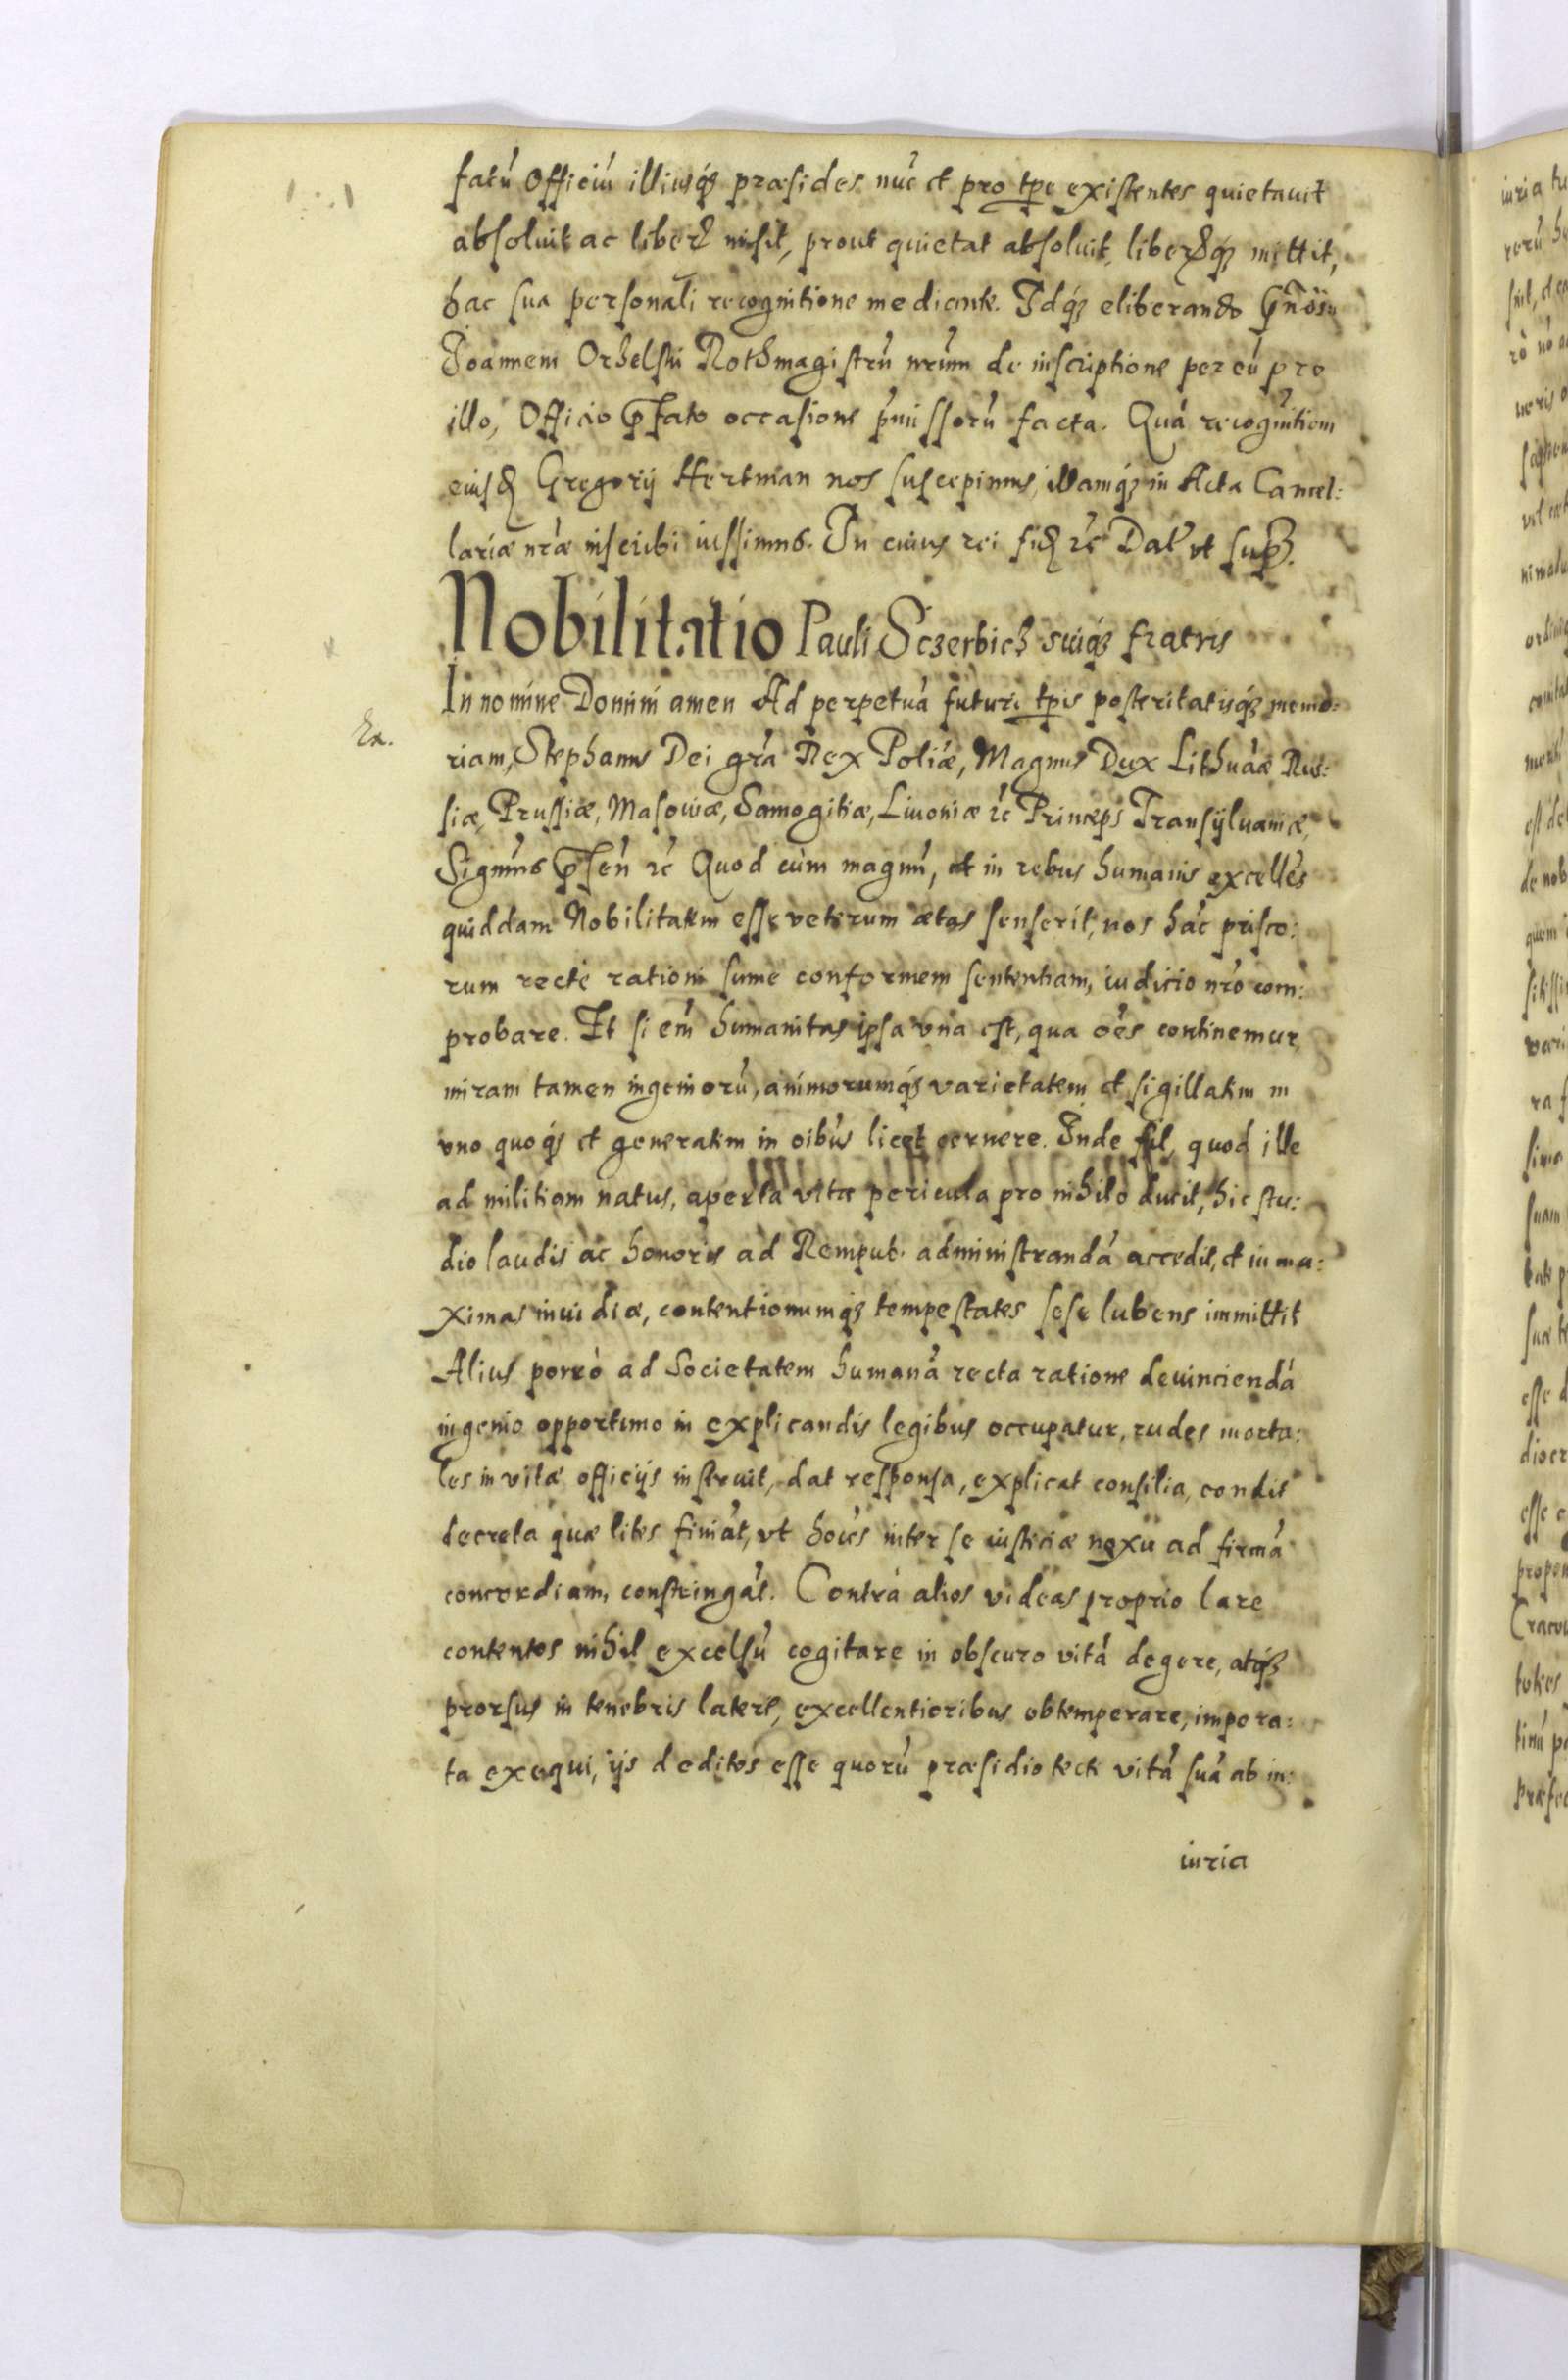 fatũ Officiũ illiusq́ʒ præsides nũc et pro tp̱e existentes quietauit
absoluit ac liberũ misit, prout quietat absoluit, liberũq́ʒ mittit,
hac sua personali recognitione mediante. Idq́ʒ eliberando Gn̄osũ
Joannem Orzelski Rothmagistrũ nrũm de inscriptione per eũ pro
illo, Officio p̱fato occasione p̃missorũ facta. Quã recognitionem
eiusd̃ Gregorij Hertman nos suscepimus, illamq́ʒ in Acta Cancel:
lariæ nr̃æ inscribi iussimus. In cuius rei fid̃ ꝛc̃ Dat̃ vt sup̱.
Nobilitatio Pauli Sczerbicz suiq́ʒ fratris
In nomine Domini amen Ad perpetuã futuri tp̱is posteritatisq́ʒ memo:
riam, Stephanus Dei gr̃a Rex Poliæ, Magnus Dux Lithuãæ Rus:
siæ, Prussiæ, Masouiæ, Samogitiæ, Liuoniæ ꝛc Princeps Transyluaniæ,
Signm̃s p̱sen̄ ꝛc̃ Quod cùm magnũ, et in rebus humanis excellẽs
quiddam Nobilitatem esse veterum ætas senserit, nos hãc prisco:
rum rectè rationi sume conformem sententiam, iudicio nr̃o com:
probare. Et si em̃ humanitas ipsa vna est, qua oẽs continemur
miram tamen ingeniorũ, animorumq́ʒ varietatem et sigillatim in
vno quoq́ʒ et generatim in oibũs licet cernere. Inde fit, quod ille
ad militiam natus, aperta vitæ pericula pro nihilo ducit, hic stu:
dio laudis ac honoris ad Rempub. administrandã accedit, et in ma:
ximas inuidiæ, contentionumq́ʒ tempestates sese lubens immittit
Alius porrò ad Societatem humanã recta ratione deuinciendã
ingenio opportuno in explicandis legibus occupatur, rudes morta:
les in vitæ officijs instruit, dat responsa, explicat consilia, condit
decreta quæ lites finiãt, vt hoiẽs inter se iusticiæ nexu ad firmã
concordiam, constringãt. Contrà alios videas proprio lare
contentos nihil excelsũ cogitare in obscuro vitã degere, atq́ʒ
prorsus in tenebris latere, excellentioribus obtemperare, impera:
ta exequi, ijs deditos esse quorũ præsidio tecti vitã suã ab in:
iuria